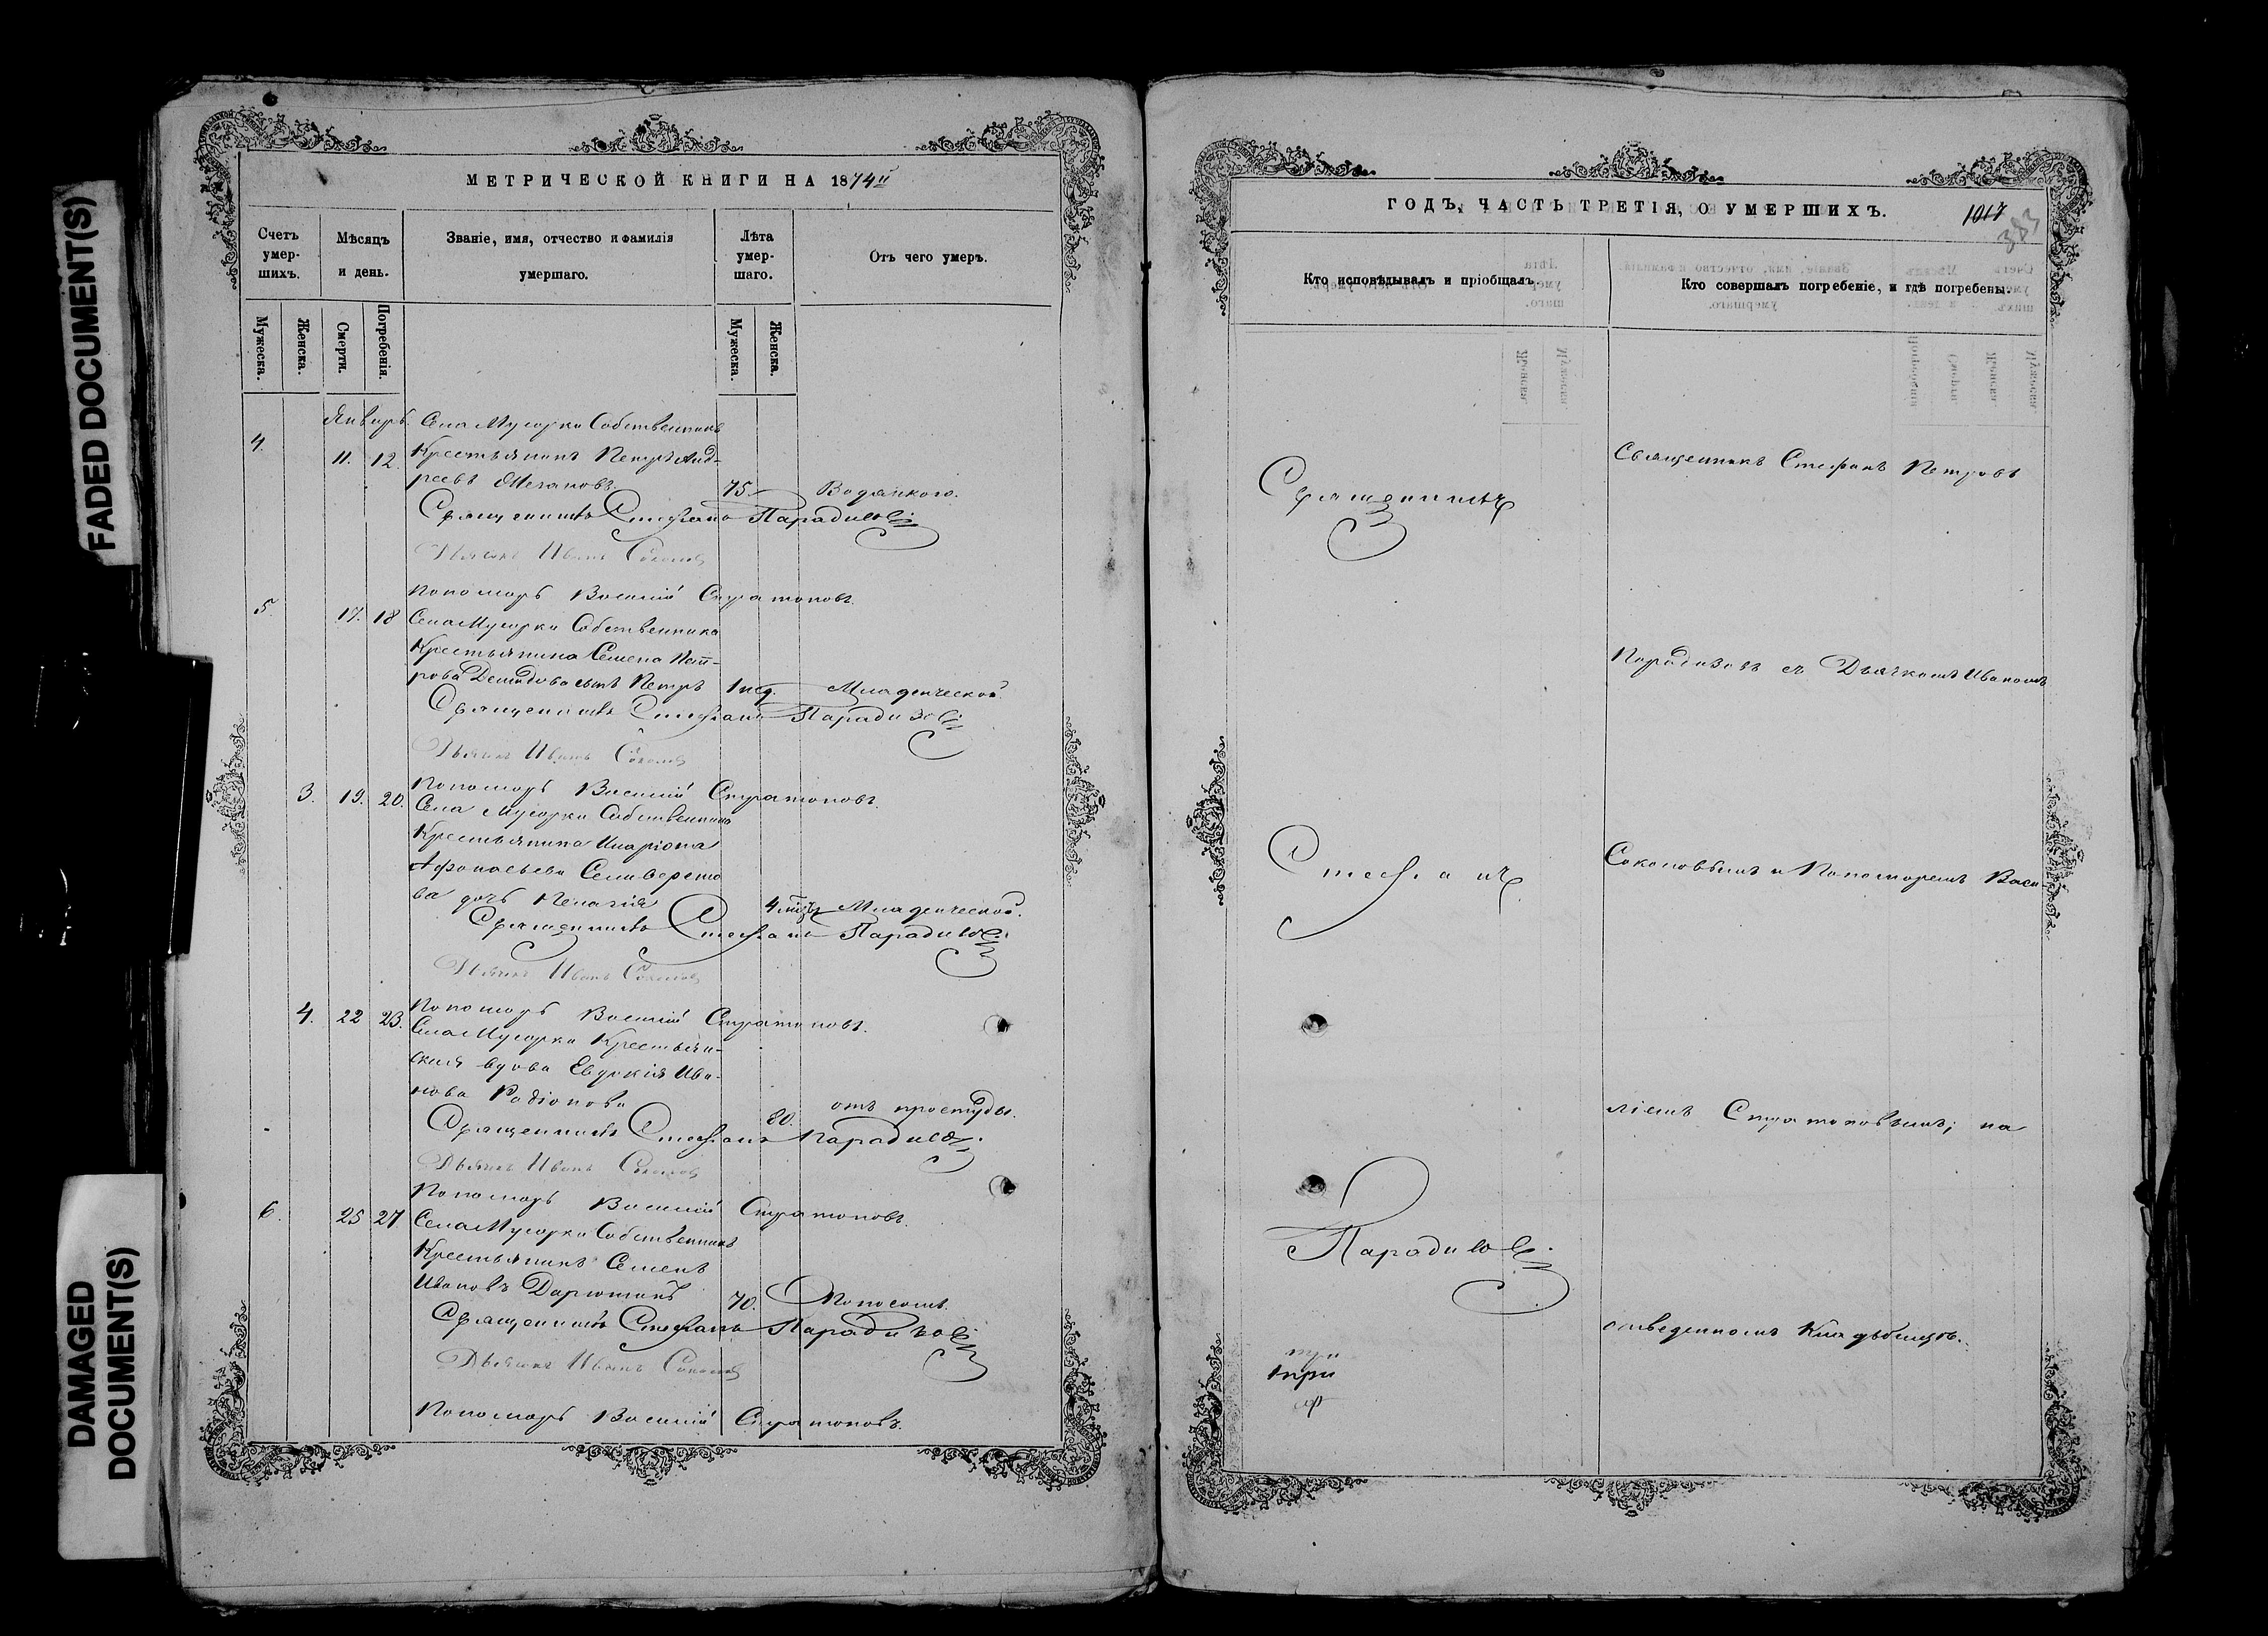 FADED DOCUMENT(S)
DAMAGED DOCUMENT(S)
МЕТРИЧЕСКОЙ КНИГИ НА 1874й
Счетъ умер-шихъ.
Мѣсяцъ и день.
Званіе, имя, отчество и фамилія умершаго.
Лѣта умер-шаго.
Отъ чего умеръ.
Мужеска.
Женска.
Смерти.
Погребенія.
Мужеска.
Женска.
Январь. Села Мусорки Собственникъ
4. 11. 12. Крестьянинъ Петръ Анд-
реевъ 75. Водянкою.
Священникъ Стефанъ Парадизовъ
Дьячекъ Иванъ Соколовъ
Пономарь Василій Стратоновъ.
5. 17. 18 Села Мусорки Собственника
Крестьянина Семена Пет-
рова Демидова сынъ Петръ 1 нед. Младенческой.
Священникъ Стефанъ Парадизовъ
Дьячекъ Иванъ Соколовъ
Пономарь Василій Стратоновъ.
3. 19. 20. Села Мусорки Собственника
Крестьянина Иларіона
Афонасьева Селиверсто
ва дочь Пелагія 4 Младенческой.
Священникъ Стефанъ Парадизовъ
Дьячекъ Иванъ Соколовъ
Пономарь Василій Стратоновъ.
4. 22 23. Села Мусорки Крестьян-
ская вдова Евдокія Ива-
нова Родіонова 80. отъ простуды.
Священникъ Стефанъ Парадизовъ.
Дьячекъ Иванъ Соколовъ
Пономарь Василій Стратоновъ.
6. 25 27. Села Мусорки Собственникъ
Крестьянинъ Семенъ
Ивановъ 70. Поносомъ.
Священникъ Стефанъ Парадизовъ
Дьячекъ Иванъ Соколовъ
Пономарь Василій Стратоновъ.
ГОДЪ, ЧАСТЬ ТРЕТІЯ, О УМЕРШИХЪ.
1017
383
Кто исповѣдывалъ и пріобщалъ.
Кто совершалъ погребеніе, и гдѣ погребены.
Священникъ
Стефанъ
Парадизовъ.
Священникъ Стефанъ Петровъ
Парадизовъ съ Дьячкомъ Иваномъ
Соколовымъ и Пономаремъ Васи-
ліемъ Стратоновымъ; на
отведенномъ Кладбищѣ.
при